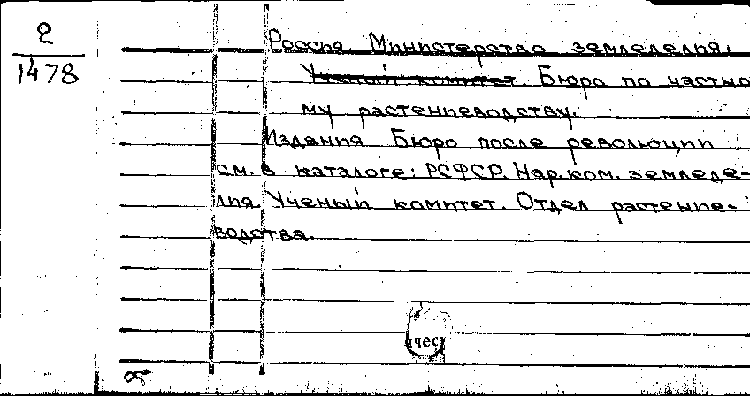 2
1478
Россия Министерство земледелия.
Ученый комитет. Бюро по частно
му растениеводству.
Издания Бюро после революции
см. в каталоге: РСФСР. Нар.ком. земледе-
лия. Ученый комитет. Отдел растение-
водства.
чес